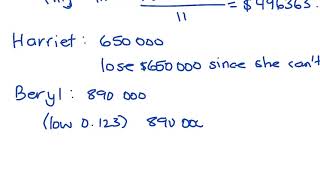 11 = $496363.
Harriet: 650 000
lose $650 000 since she can't
Beryl: 890 000
(low 0.123) 890 000